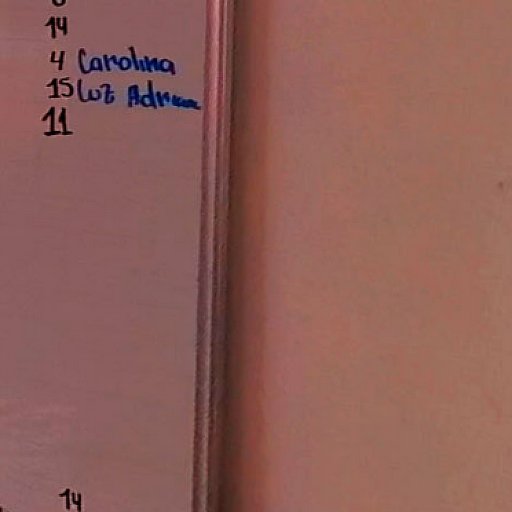 14
4 Carolina
15 Luz Adriana
11
14